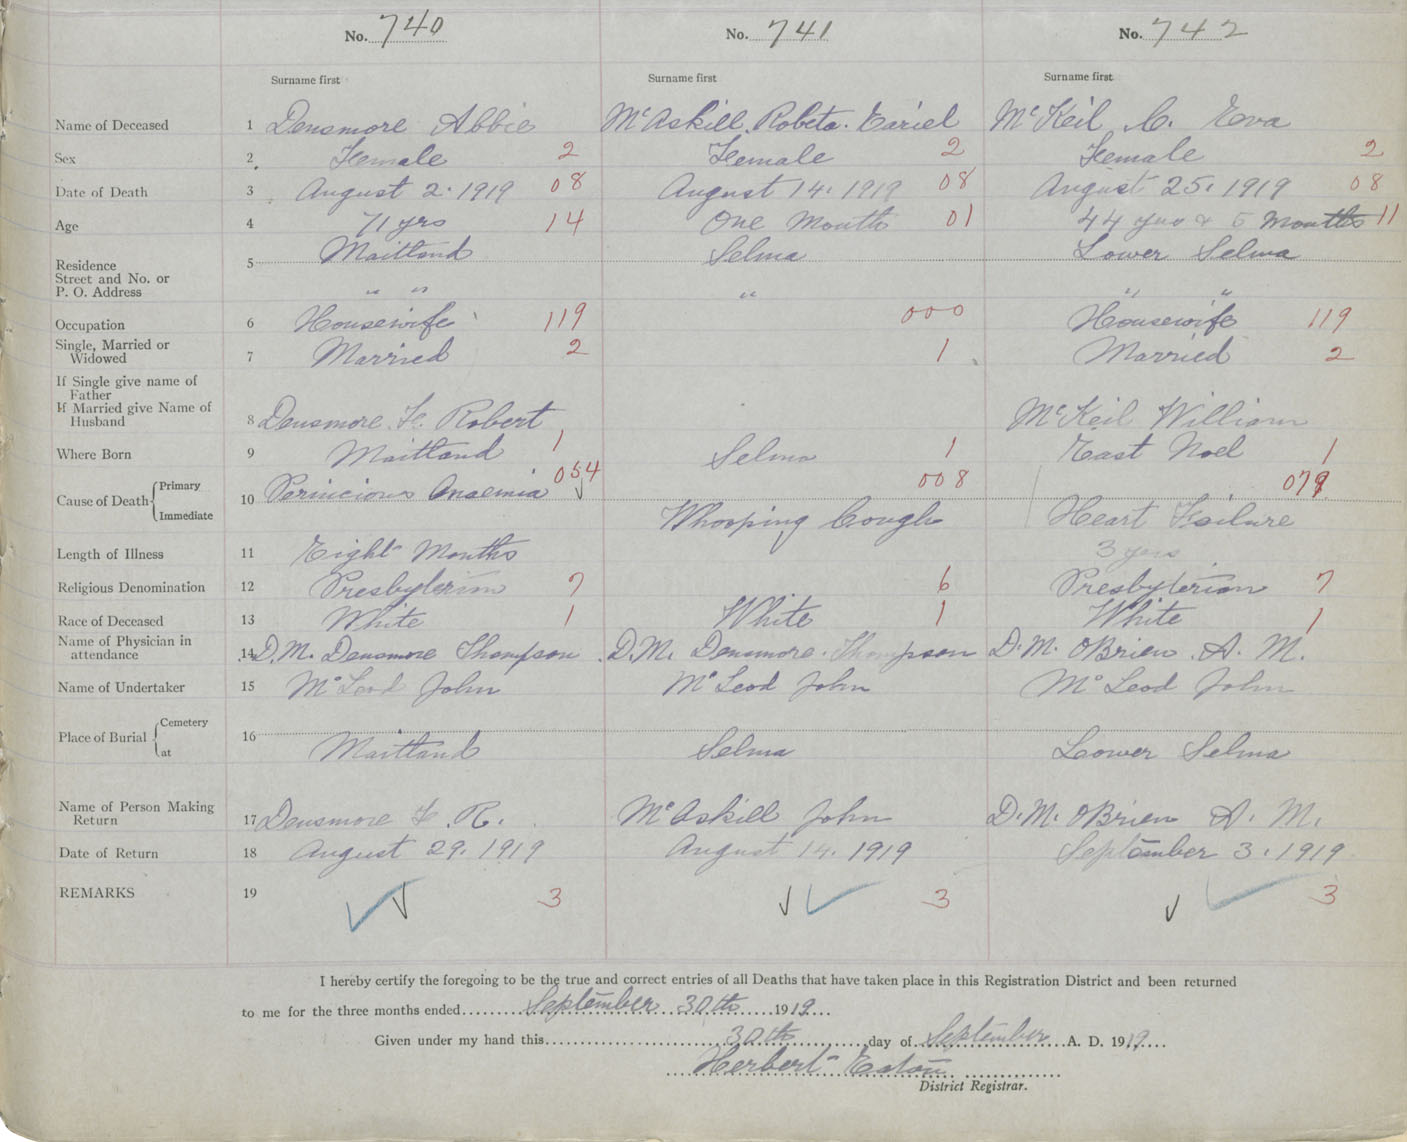 No. 740 No. 741 No. 742
Surname first Surname first Surname first
Name of Deceased 1 Densmore Abbie McAskill. Robeta. Eariel McKeil C. Eva
Sex 2 Female 2 Female 2 Female 2
Date of Death 3 August 2. 1919 08 August 14. 1919 08 August 25. 1919 08
Age 4 71 yrs 14 One Month 01 44 yrs & 5 Months 11
Residence
Street and No. or
P. O. Address
5 Maitland Selma Lower Selma
" " " " "
Occupation 6 Housewife 119 000 Housewife 119
Single, Married or
Widowed
7 Married 2 1 Married 2
If Single give name of
Father
If Married give Name of
Husband
8 Densmore F. Robert McKeil William
Where Born 9 Maitland 1 Selma 1 East Noel 1
Cause of Death Primary
Immediate
10 Pernicious Anaemia 054 008 079
Whooping Cough Heart Failure
Length of Illness 11 Eight Months 3 yers
Religious Denomination 12 Presbyterian 7 6 Presbyterian 7
Race of Deceased 13 White 1 White 1 White 1
Name of Physician in
attendance
14 D.M. Densmore Thompson D.M. Densmore. Thompson D.M. OBrien. A. M.
Name of Undertaker 15 McLeod John McLeod John McLeod John
Place of Burial Cemetery
at
16 Maitland Selma Lower Selma
Name of Person Making
Return
17 Densmore F. R. McAskill John D.M. OBrien A. M.
Date of Return 18 August 29. 1919 August 14. 1919 September 3. 1919
REMARKS 19 3 3 3
I hereby certify the foregoing to be the true and correct entries of all Deaths that have taken place in this Registration District and been returned
to me for the three months ended September 30th 1919
Given under my hand this 30th day of September A. D. 1919
Herbert Eaton
District Registrar.